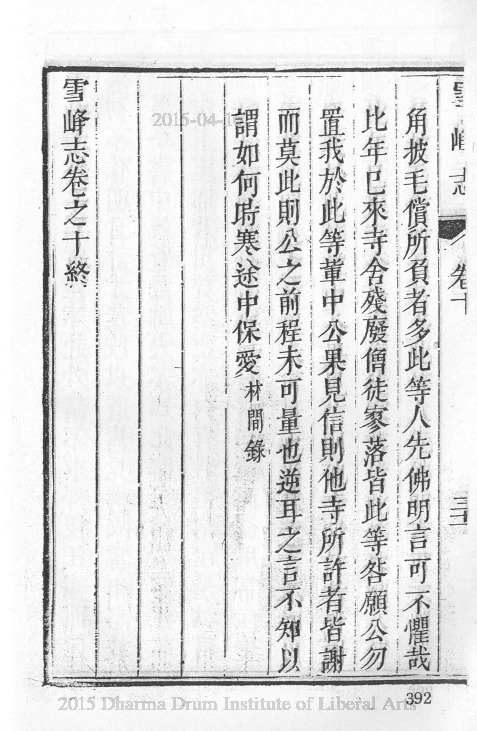 雪峰志
卷十
角披毛償所負者多此等人先佛明言可不懼哉
比年已來寺舍殘廢僧徒寥落皆此等咎願公勿
置我於此等軰中公果見信則他寺所許者皆謝
而莫此則公之前程未可量也逆耳之言不知以
謂如何時寒途中保愛林間錄
雪峰志卷之十終
2015-04-1
392
2015 Dharma Drum Institute of Liberal Arts